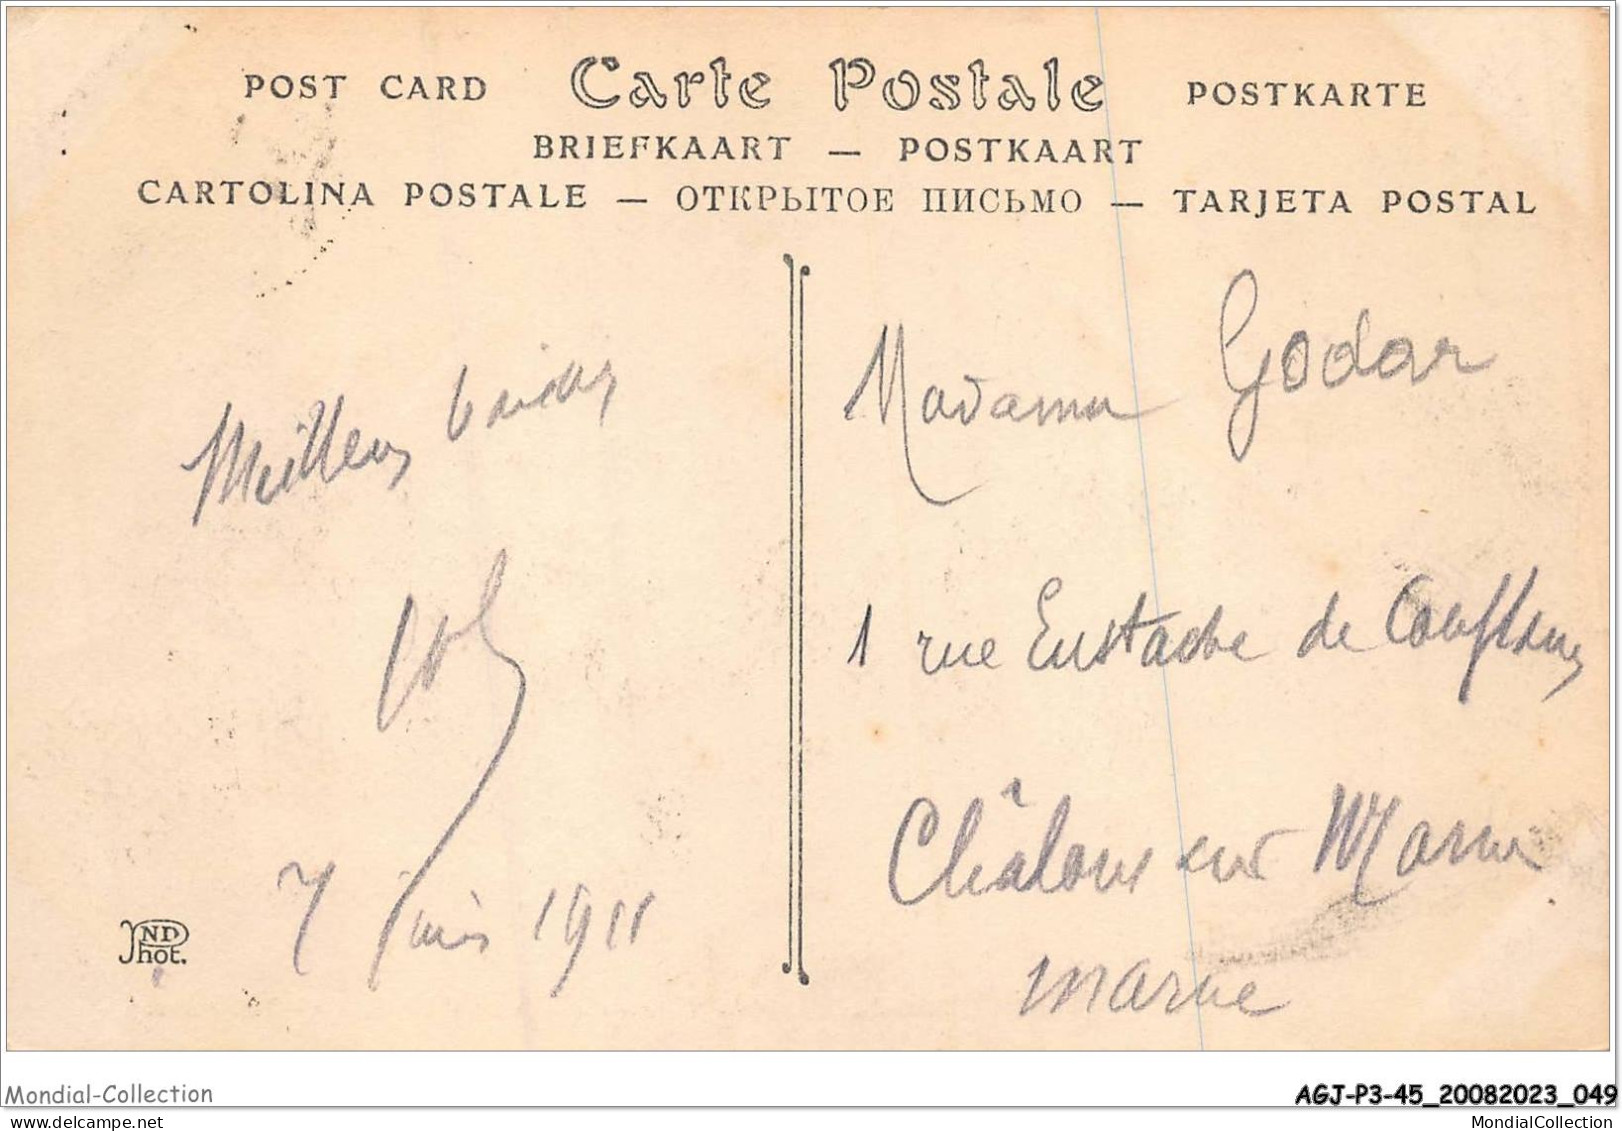 POST CARD Carte Postale POSTKARTE
BRIEFKAART — POSTKAART
CARTOLINA POSTALE — ОТКРЫТОЕ ПИСЬМО — TARJETA POSTAL
Meilleurs baisers
7 juin 1911
ND Phot.
Madame Godar
1 rue Eustache de Conflans
Châlons sur Marne
Marne
Mondial-Collection
AGJ-P3-45_20082023_049
MondialCollection
MondialCollection